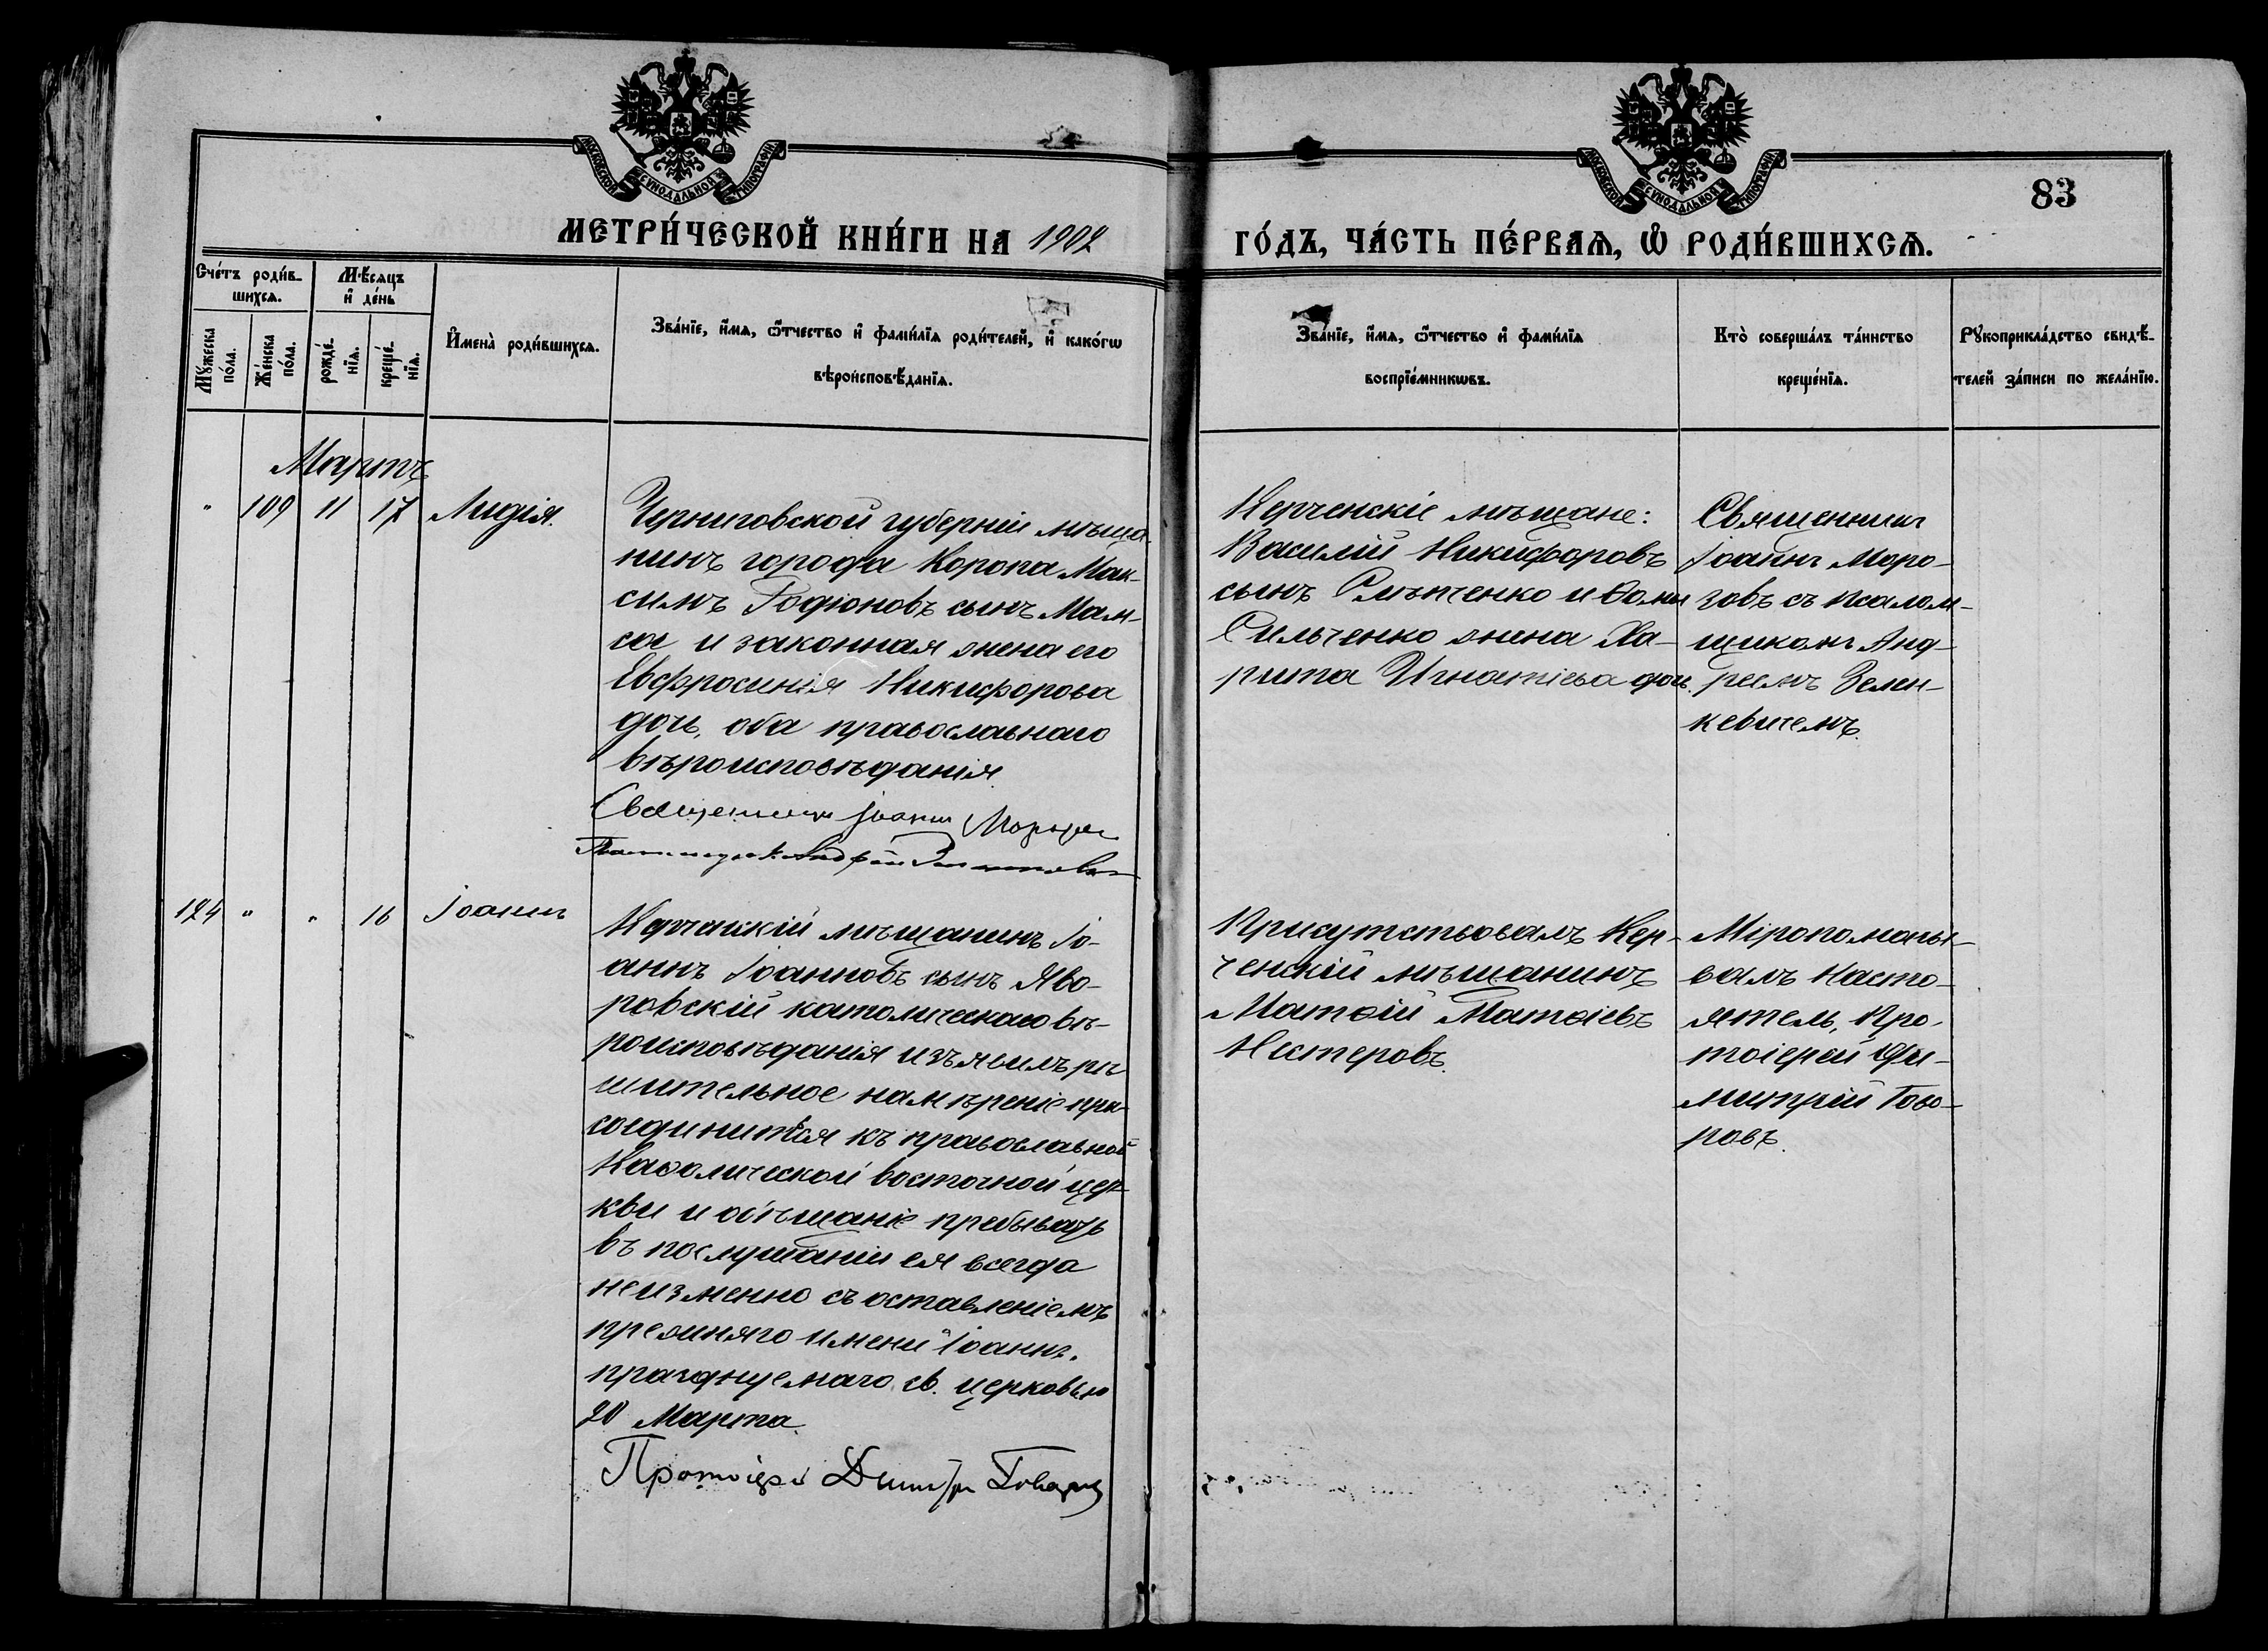 МОСКОВСКОЙ СѴНОДАЛЬНОЙ ТИПОГРАФІИ
МОСКОВСКОЙ СѴНОДАЛЬНОЙ ТИПОГРАФІИ
83
МЕТРИ́ЧЕСКОЙ КНИ́ГИ НА 1902
ГО́ДЪ, ЧА́СТЬ ПЕ́РВАѦ, Ѡ҆ РОДИ́ВШИХСѦ.
Сче́тъ роди́в-
шихсѧ.
Мꙋ́жеска
по́ла.
Же́нска
по́ла.
Мѣ́сѧцъ
и҆ де́нь
рожде́-
нїѧ.
креще́-
нїѧ.
И҆мена̀ роди́вшихсѧ.
Зва́нїе, и҆́мѧ, ѻ҆́тчество и҆ фами́лїѧ роди́телей, и҆ како́гѡ
вѣроисповѣ́данїѧ.
Зва́нїе, и҆́мѧ, ѻ҆́тчество и҆ фами́лїѧ
воспрїе́мникѡвъ.
Кто̀ соверша́лъ та́инство
креще́нїѧ.
Рꙋкоприкла́дство свидѣ́-
телей за́писи по жела́нїю.
Мартъ
" 109 11 17 Лидія.
Черниговской губерніи мѣща-
нинъ города Коропа Мак-
симъ Родіоновъ сынъ Мам-
и законная жена его
Евфросинія Никифорова
дочь, оба православнаго
вѣроисповѣданія.
Священникъ Іоаннъ Морозовъ
Андрей
Керченскіе мѣщане:
Василій Никифоровъ
сынъ и Ѳомы
Сильченко жена Ха-
рита Игнатіева дочь.
Священникъ
Іоаннъ Моро-
зовъ съ псалом-
щикомъ Анд-
реемъ Зелен-
кевичемъ.
124 " " 16 Іоаннъ
Керченскій мѣщанинъ Іо-
аннъ Іоанновъ сынъ Яво-
ровскій католическаго вѣ-
роисповѣданія изъявилъ рѣ-
шительное намѣреніе при-
соединиться къ православной
Каѳолической восточной цер-
кви и обѣщаніе пребывать
въ послушаніи ея всегда
неизменно съ оставленіемъ
прежняго имени "Іоаннъ"
празднуемаго св. церковью
20 Марта.
Протоіерей Димитрій Говоровъ
Присутствовалъ Кер-
ченскій мѣщанинъ
Матѳій Матѳіевъ
Нестеровъ.
Мѵропомазы-
валъ Насто-
ятель, Про-
тоіерей Ди-
митрій Гово-
ровъ.